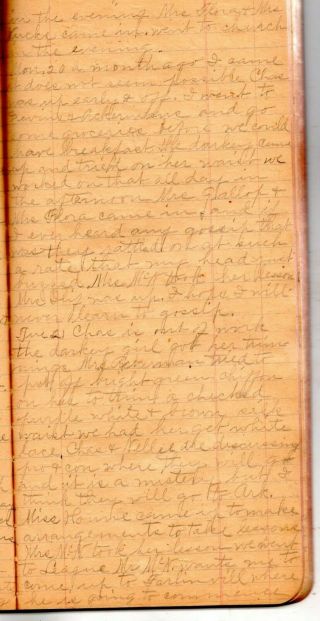 in the evening Mrs Flora & Mrs
came up. went to church
in the evening.
Mon. 20 a month ago I came
it does not seem possible Chas
was up early & off. I went to
and go
some groceries before we could
have breakfast the darkey came
up and trim on her waist we
worked on that all day in
the afternoon Mrs Gallop &
Mrs Flora came in and if
I ever heard any gossip that
was they rattled on at such
a rate that my head just
buzzed. Mrs McK took her lesson
Mrs was up. I hope I will
never learn to gossip.
Tue 21 Chas is out of work
the darkey girl got her trim
mings Mrs tried to
put a bright green chiffon
on has to trim a checked
purple white & brown silk
waist we had her get white
lace. Chas & Nellie the discussing
pro & con where they will go
and it is a mystery but I
think they will go to Ark.
Miss came up to make
arrangements to take lessons
Mrs McK took her lesson we went
to League Mr McK wants me to
come up to where
he is going to commence